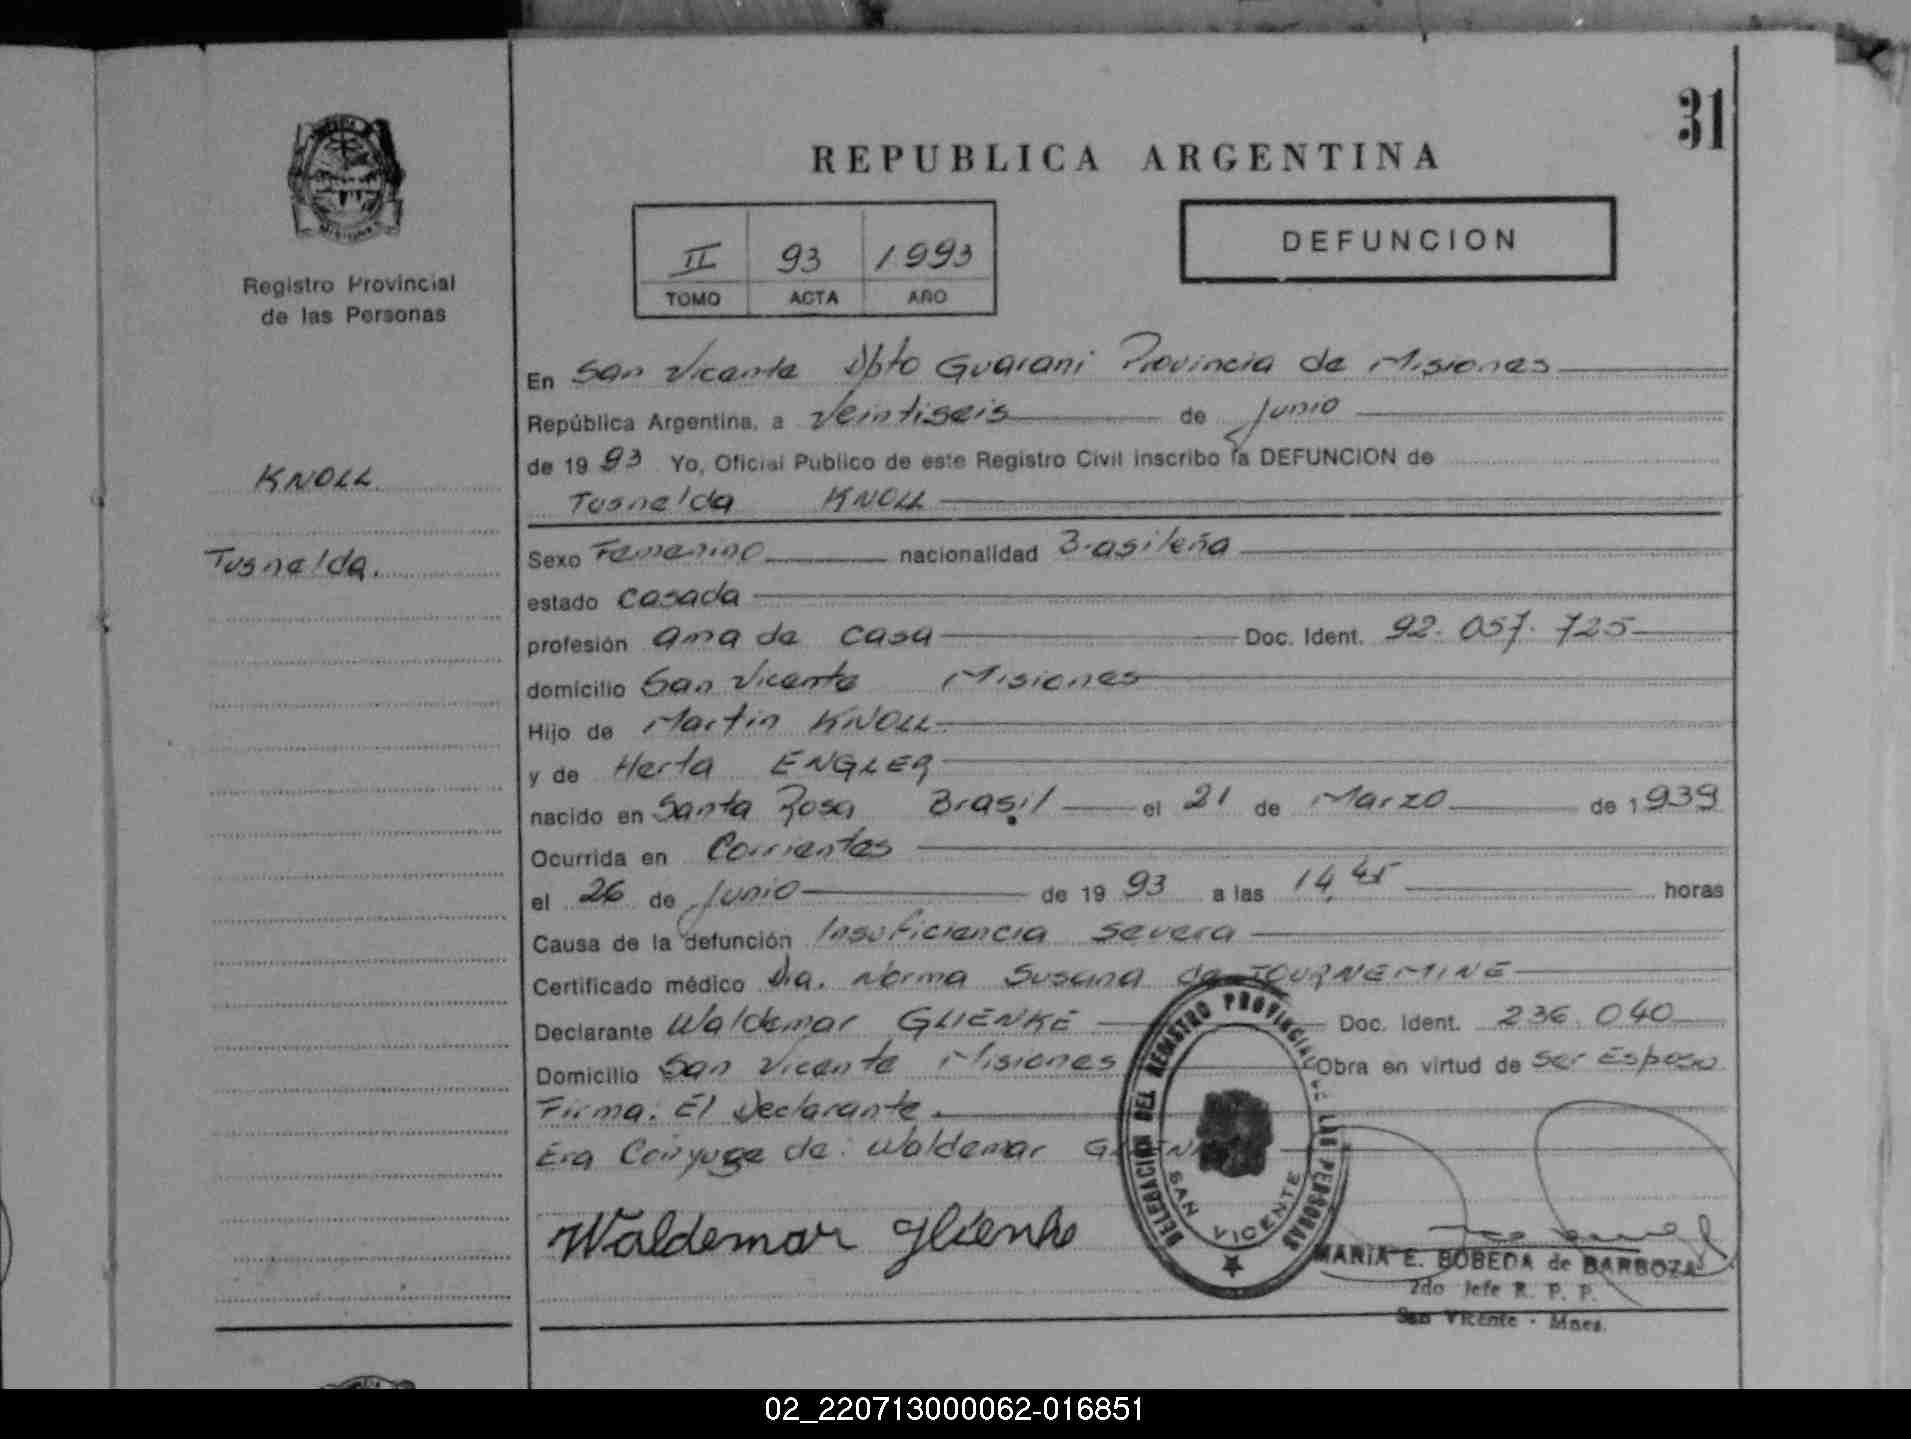 31
REPUBLICA ARGENTINA
II 93 1993
TOMO ACTA AÑO
DEFUNCION
Registro Provincial
de las Personas
KNOLL
Tusnelda.
En San Vicente Dpto Guarani Provincia de Misiones
República Argentina, a Veintiseis de Junio
de 1993 Yo, Oficial Publico de este Registro Civil inscribo la DEFUNCION de
Tusnelda KNOLL
Sexo Femenino nacionalidad Brasileña
estado Casada
profesión ama de casa Doc. Ident. 92.057.725
domicilio San Vicente Misiones
Hijo de Martin KNOLL
y de Herta ENGLER
nacido en Santa Rosa Brasil el 21 de Marzo de 1939
Ocurrida en Corrientes
el 26 de Junio de 1993 a las 14,45 horas
Causa de la defunción Insuficiencia severa
Certificado médico Dra. Norma Susana de TOURNEMINE
Declarante Waldemar GLIENKE Doc. Ident. 236.040
Domicilio San Vicente Misiones Obra en virtud de ser Esposo
Firma: El Declarante.
Era Cónyuge de: Waldemar GLIENKE
Waldemar Glienke
DELEGACION DEL REGISTRO PROVINCIAL DE LAS PERSONAS
SAN VICENTE
MARIA E. BOBEDA de BARBOZA
2do Jefe R. P. P.
San Vicente - Mnes.
02_220713000062-016851